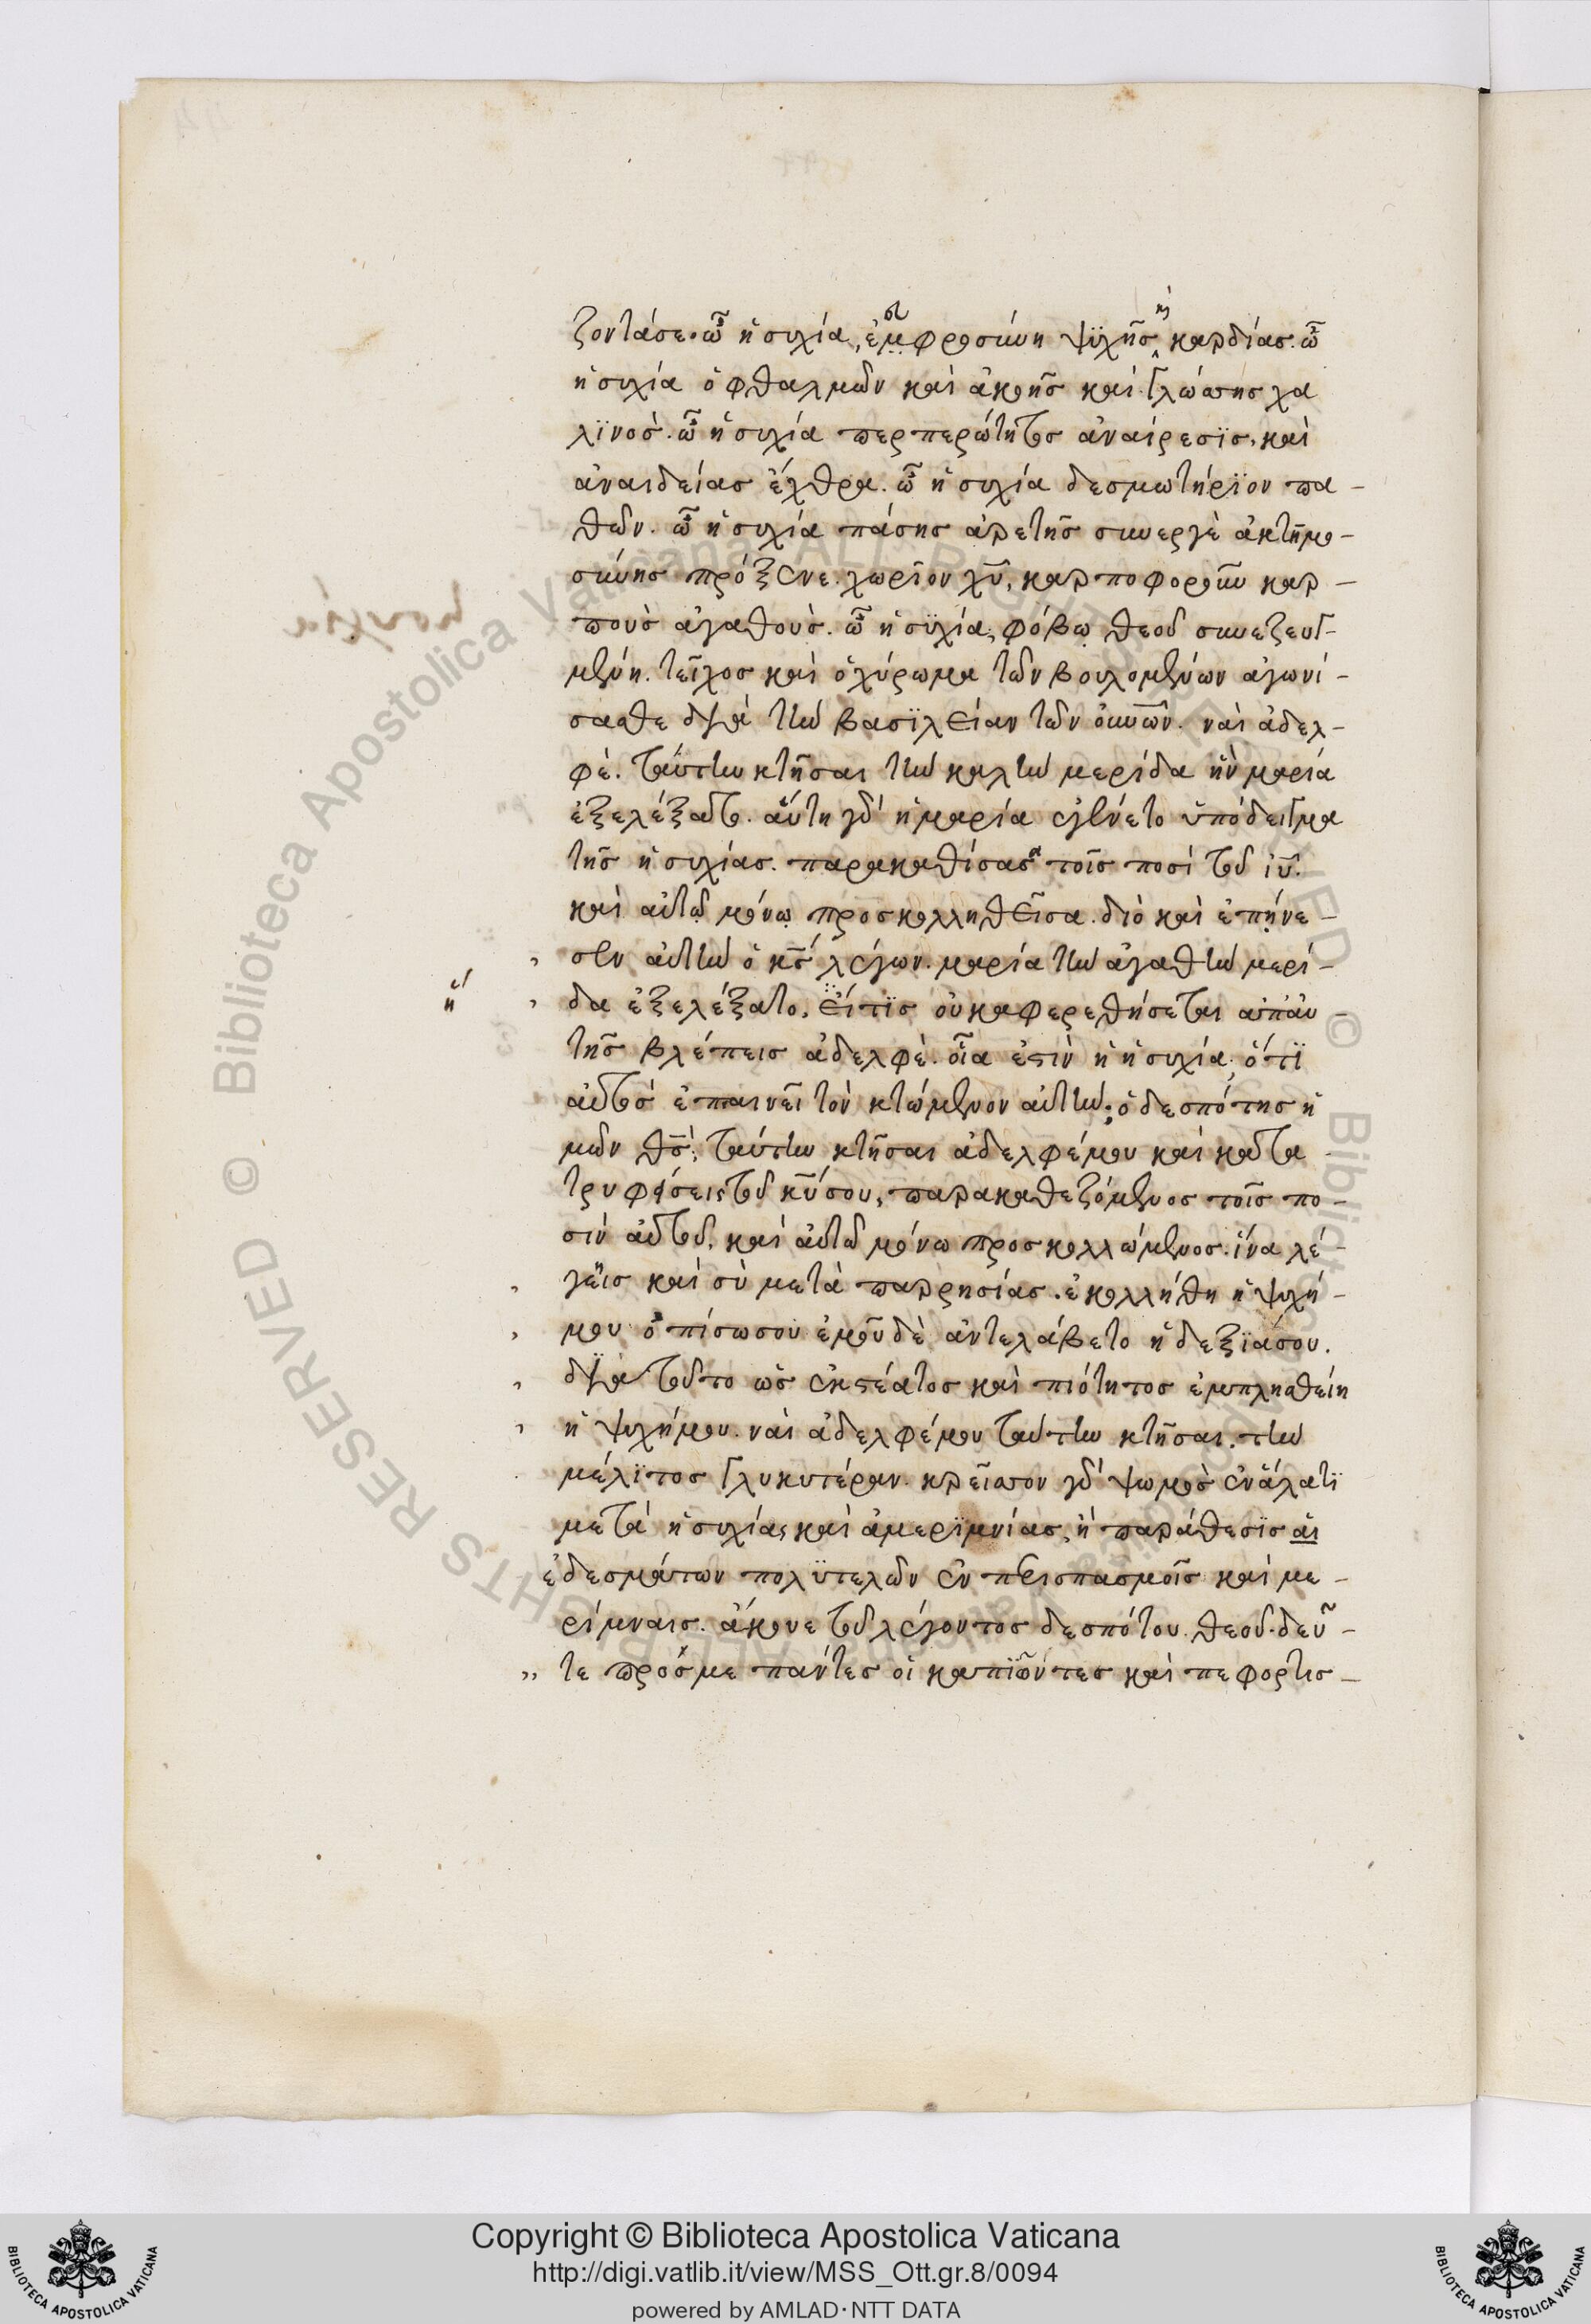 ζοντάσε. ὦ ἡσυχία, ἐμφροσύνη ψϋχῆς καὶ καρδίας. ὦ
ἡσυχία ὀφθαλμῶν καὶ ἀκοῆς καὶ γλώσσης χα
λϊνοσ. ὦ ἡσυχία περπερότητος ἀναίρεσϊς, καὶ
ἀναιδείας ἔχθρα. ὦ ἡσυχία δεσμωτήρϊον πα-
θῶν. ὦ ἡσυχία πάσης ἀρετῆς συνεργὲ ἀκτημο-
σύνης πρόξενε. χωρῖον χυ, καρποφοροῦν καρ-
ποὺς ἀγαθούς. ὦ ἡσϋχία, φόβω θεοῦ συνεζευγ-
μένη. τεῖχος καὶ ὀχύρωμα τῶν βουλομένων ἀγωνί-
σασθε διὰ τὴν βασϊλείαν τῶν οὐνῶν. ναὶ ἀδελ-
φέ. ταύτην κτῆσαι τὴν καλὴν μερίδα ἣν μαρία
ἐξελέξατο. αὕτη γὰρ ἡ μαρία ἐγένετο ὑπόδειγμα
τῆς ἡσυχίας. παρακαθίσασα τοῖς ποσὶ τοῦ ιυ.
καὶ αὐτῷ μόνῳ προσκολληθεῖσα. διὸ καὶ ἐπῄνε-
σεν αὐτὴν ὁ κς λέγων. μαρία τὴν ἀγαθὴν μερί-
ἥ
δα ἐξελέξατο. εἵτϊς οὐκαφερεθήσεται ἀπαὐ-
τῆς βλέπεις ἀδελφέ. οἵα ἐστὶν ἡ ἡσυχία, ὅτϊ
αὐτὸς ἐπαινεῖ τὸν κτώμενον αὐτήν; ὁ δεσπότης ἡ
μῶν θς; ταύτην κτῆσαι ἀδελφέμου καὶ κατα
τρυφήσεις τοῦ κυσου, παρακαθεζόμενος τοῖς πο-
σὶν αὐτοῦ, καὶ αὐτῶ μόνω προσκολλώμενος. ἵνα λέ-
γεις καὶ σὺ μετὰ παρρησίας. ἐκολλήθη ἡ ψυχή-
μου ὀπίσωσου ἐμοῦ δὲ ἀντελάβετο ἡ δεξϊάσου.
διὰ τοῦτο ὡς ἐκ στέατος καὶ πιότητος ἐμπλησθείη
ἡ ψυχήμου. ναὶ ἀδελφέμου ταύτην κτῆσαι. τὴν
μέλϊτος γλυκυτέραν. κρεῖσσον γὰρ ψωμὸς ἐν ἅλατϊ
μετὰ ἡσυχίας καὶ ἀμερϊμνίας, ἡ παράθεσϊς αι
ἐδεσμάτων πολϋτελῶν ἐν περισπασμοῖς καὶ με-
ρίμναις. ἄκουε τοῦ λέγοντος δεσπότου. θεοῦ. δεῦ-
τε πρόσμε πάντες οἱ κοπϊῶντες καὶ πεφορτισ-